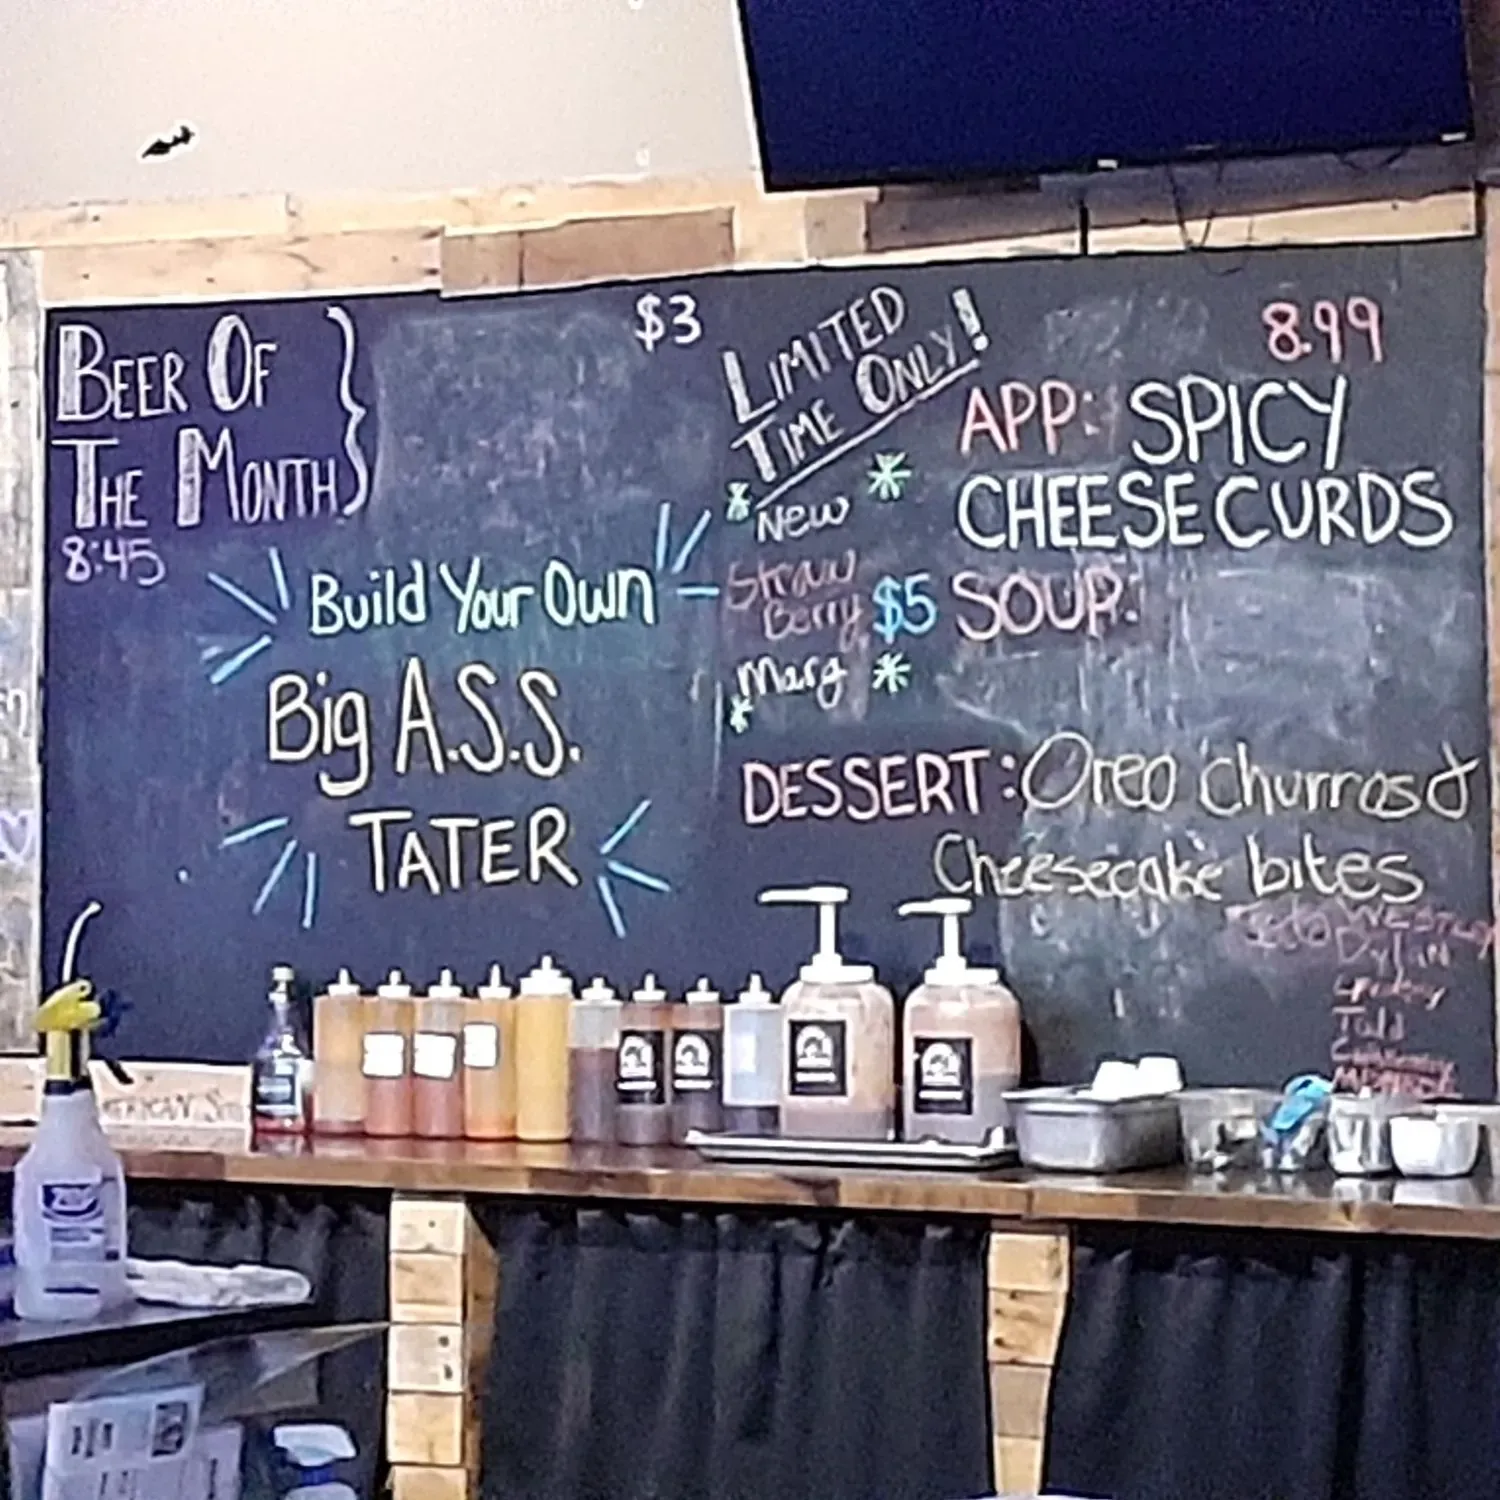 BEER OF
THE MONTH
8:45
$3
Build Your Own
Big A.S.S.
TATER
LIMITED
TIME ONLY!
New
Straw
Berry
$5
Marg
8.99
APP: SPICY
CHEESE CURDS
SOUP:
DESSERT: Oreo churros &
Cheesecake bites
Dylan